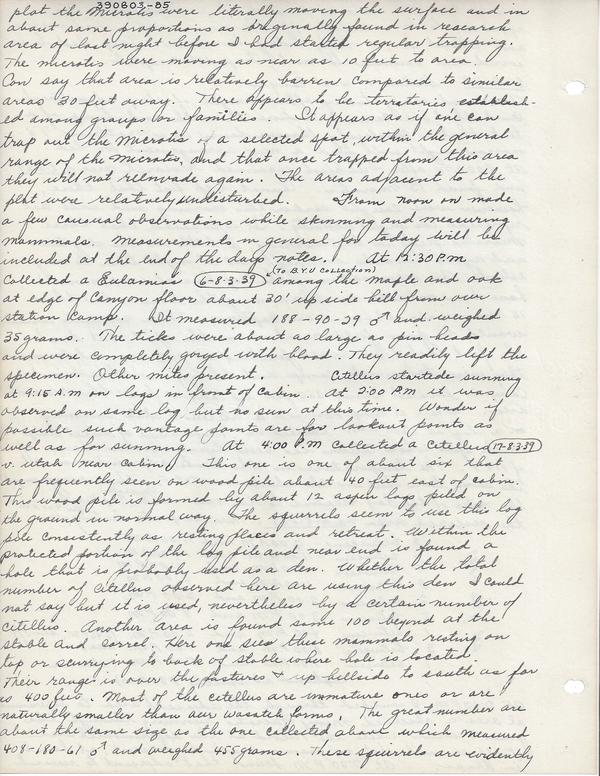 390803-85
plot the Microtis were literally moving the surface and in
about same proportions as originally found in research
area of last night before I had started regular trapping.
The microtis were moving as near as 10 feet to area.
Can say that area is relatively barren compared to similar
areas 30 feet away. There appears to be terratories establish-
ed among groups or families. It appears as if one can
trap out the Microtis of a selected spot, within the general
range of the Microtis, and that once trapped from this area
they will not reenvade again. The areas adjacent to the
plot were relatively undisturbed. From noon on made
a few causual observations while skinning and measuring
mammals. Measurements in general for today will be
included at the end of the days notes. At 12:30 P.M
(To B.Y.U Collection)
Collected a Eutamias 6-8-3-39 among the maple and oak
at edge of Canyon floor about 30' up side hill from our
station camp. It measured 188-90-29 ♂ and weighed
35 grams. The ticks were about as large as pin heads
and were completely gorged with blood. They readily left the
specimen. Other mites present. Citellus startede sunning
at 9:15 A.M on logs in front of Cabin. At 2:00 P.M it was
observed on same log but no sun at this time. Wonder if
possible such vantage points are for lookout points as
well as for sunning. At 4:00 P.M Collected a Citellus 17-8-3-39
v. utah near Cabin. This one is one of about six that
are frequently seen on wood pile about 40 feet east of cabin.
This wood pile is formed by about 12 aspen logs piled on
the ground in normal way. The squirrels seem to use this log
pile consistently as resting places and retreat. Within the
protected portion of the log pile and near end is found a
hole that is probably used as a den. Whether the total
number of Citellus observed here are using this den I could
not say but it is used, nevertheless by a certain number of
Citellus. Another area is found some 100 beyond at the
stable and correl. Here one sees these mammals resting on
top or scurrying to back of stable where hole is located.
Their range is over the pastures & up hillside to south as far
as 400 feet. Most of the citellus are immature ones or are
naturally smaller than our wasatch forms. The great number are
about the same size as the one collected about which measured
408-180-61 ♂ and weighed 455 grams. These squirrels are evidently